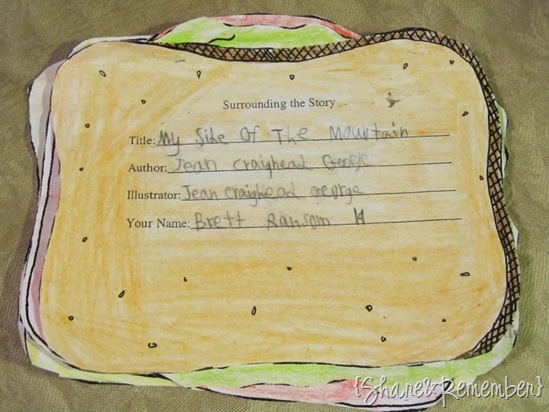 Surrounding the Story
Title: My Side Of The Mountain
Author: Jean Craighead George
Illustrator: Jean Craighead George
Your Name: Brett Ransom H
{Share&Remember}